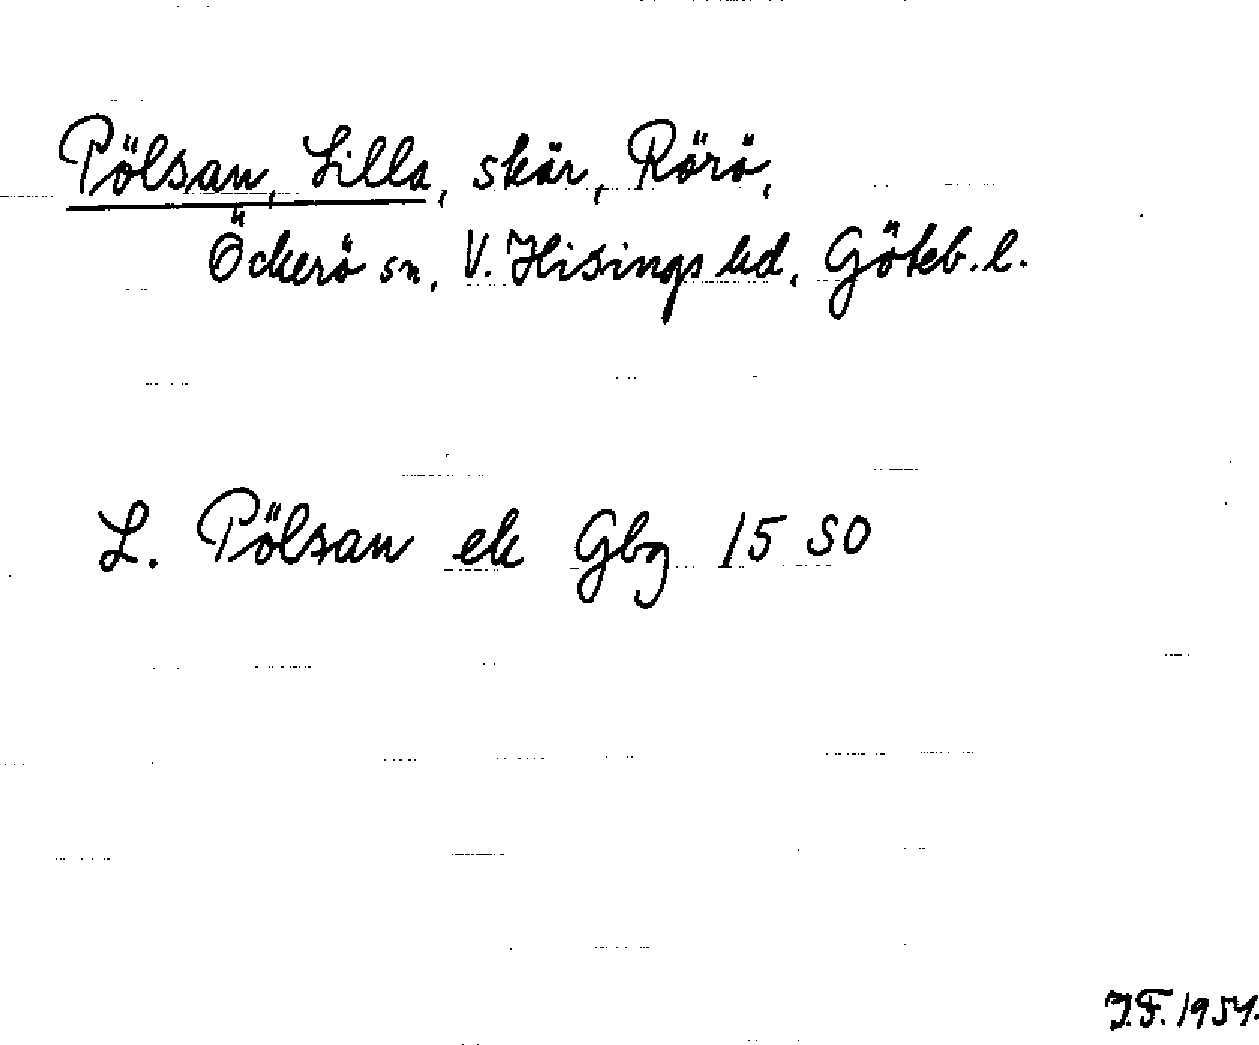 Pölsan, Lilla, skär, Rörö,
Öckerö sn, V. Hisings hd, Göteb. l.
L. Pölsan ek Gbg 15 SO
J.F. 1954.